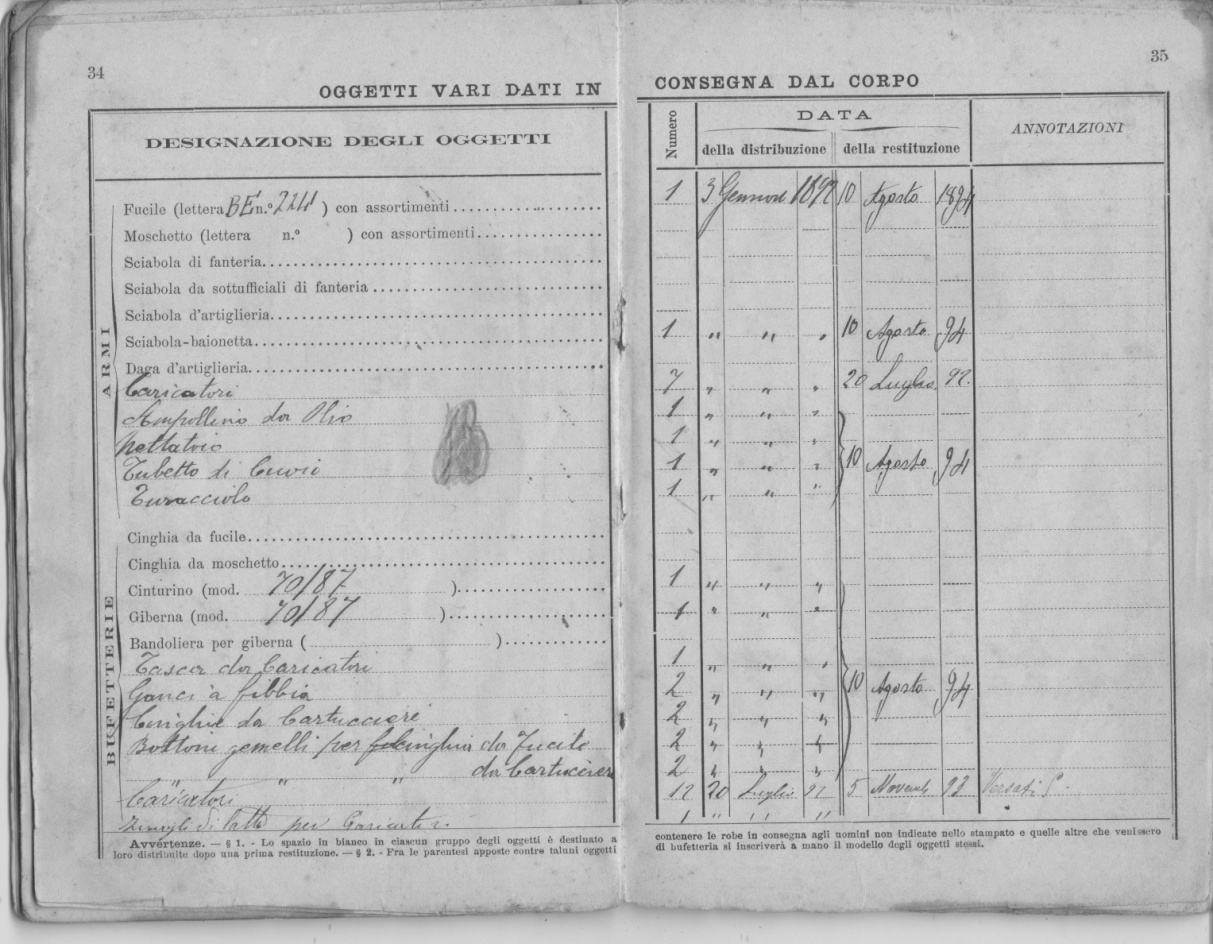 34
OGGETTI VARI DATI IN
DESIGNAZIONE DEGLI OGGETTI
ARMI
Fucile (lettera BE n.º 2241 ) con assortimenti
Moschetto (lettera n.º ) con assortimenti
Sciabola di fanteria
Sciabola da sottufficiali di fanteria
Sciabola d'artiglieria
Sciabola-baionetta
Daga d'artiglieria
Caricatori
Ampollino da Olio
Nettatoio
Tubetto di Cuoio
Turacciolo
BUFETTERIE
Cinghia da fucile
Cinghia da moschetto
Cinturino (mod. 70/87 )
Giberna (mod. 70/87 )
Bandoliera per giberna ( )
Tasca da Caricatori
Ganci a fibbia
Cinghie da Cartucciere
Bottoni gemelli per cinghia da Fucile
" " " da Cartuciere
Caricatori
di latta per Caricatori
Avvertenze. — § 1. - Lo spazio in bianco in ciascun gruppo degli oggetti è destinato a
loro distribuite dopo una prima restituzione. — § 2. - Fra le parentesi apposte contro taluni oggetti
35
CONSEGNA DAL CORPO
Numero
DATA
della distribuzione
della restituzione
ANNOTAZIONI
1 3 1892 10 Agosto 1894
1 " " " 10 Agosto 94
7 " " " 20 Luglio 92.
1 " " "
1 " " "
1 " " " 10 Agosto 94
1 " " "
1 " " "
1 " " "
1 " " "
2 " " " 10 Agosto 94
2 " " "
2 " " "
2 " " "
12 20 Luglio 92 5 Novemb 93
1 " " "
contenere le robe in consegna agli uomini non indicate nello stampato e quelle altre che venissero
di bufetteria si inscriverà a mano il modello degli oggetti stessi.